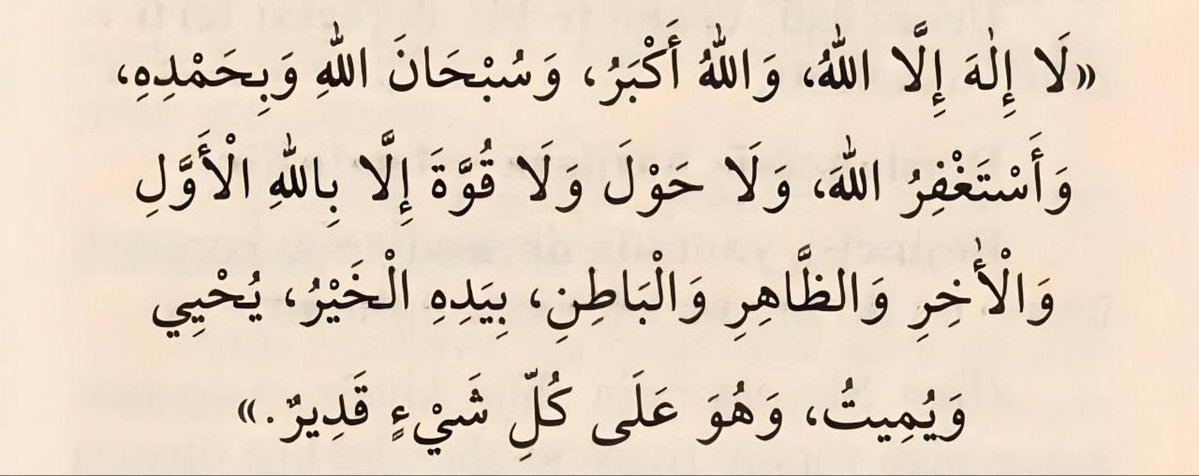 «لَا إِلٰهَ إِلَّا اللهُ، وَاللهُ أَكْبَرُ، وَسُبْحَانَ اللهِ وَبِحَمْدِهِ،
وَأَسْتَغْفِرُ اللهَ، وَلَا حَوْلَ وَلَا قُوَّةَ إِلَّا بِاللهِ الْأَوَّلِ
وَالْأٰخِرِ وَالظَّاهِرِ وَالْبَاطِنِ، بِيَدِهِ الْخَيْرُ، يُحْيِي
وَيُمِيتُ، وَهُوَ عَلَى كُلِّ شَيْءٍ قَدِيرٌ.»